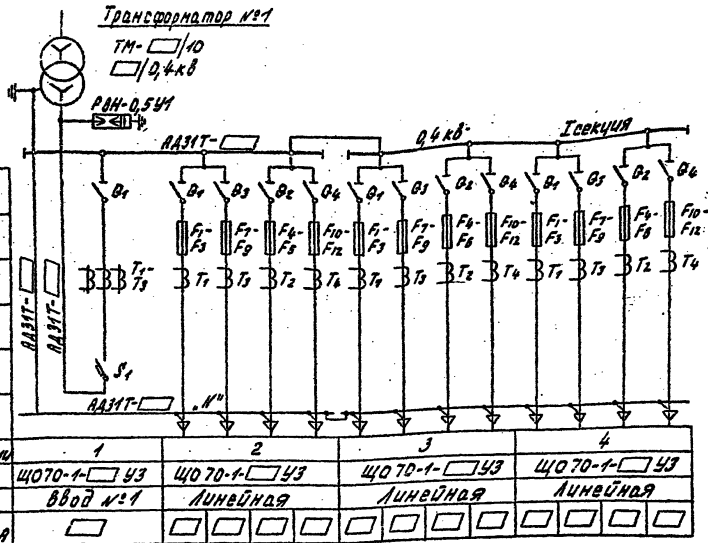 Трансформатор №1
ТМ- /10
/0,4 кВ
РВН-0,5У1
АД31Т-
0,4 кВ
I секция
Q1
Q1 Q3 Q2 Q4 Q1 Q3 Q2 Q4 Q1 Q3 Q2 Q4
F1-F3 F7-F9 F4-F6 F10-F12 F1-F3 F7-F9 F4-F6 F10-F12 F1-F3 F7-F9 F4-F6 F10-F12
T1-T3
T1 T3 T2 T4 T1 T3 T2 T4 T1 T3 T2 T4
АД31Т-
АД31Т-
S1
АД31Т-
„N"
1 2 3 4
ЩО70-1- У3 ЩО70-1- У3 ЩО70-1- У3 ЩО70-1- У3
Ввод №1 Линейная Линейная Линейная